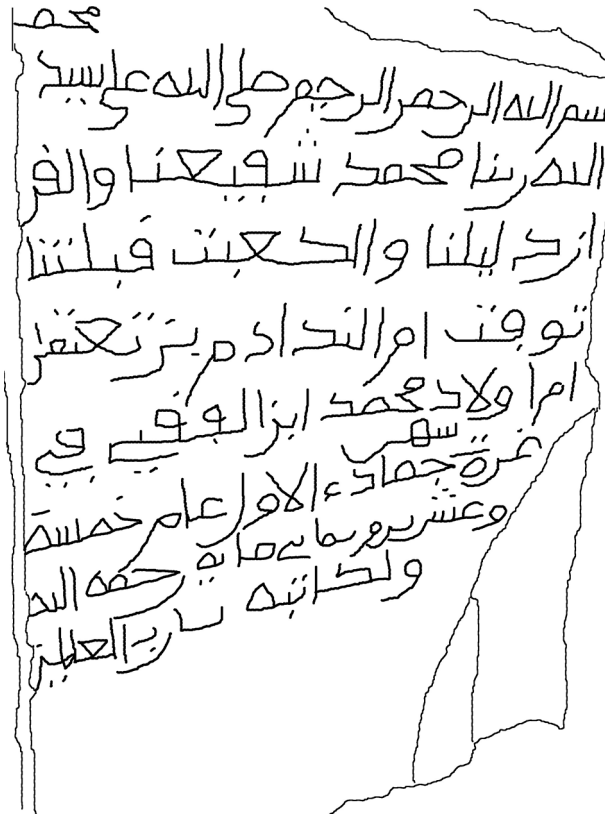 محمد
بسم الله الرحمن الرحيم صلى الله على سيد
الله ربنا محمد شفيعنا والقر
ان دليلنا والكعبت قبلتنا
توفت ام النداد مريت تعتقر
امراولاد محمد ابن الفقي في
شهر
غرة جمادى الاول عام خمسة
وعشرين وثماني ماية رحمه الله
ولكاتبه رب العالمين